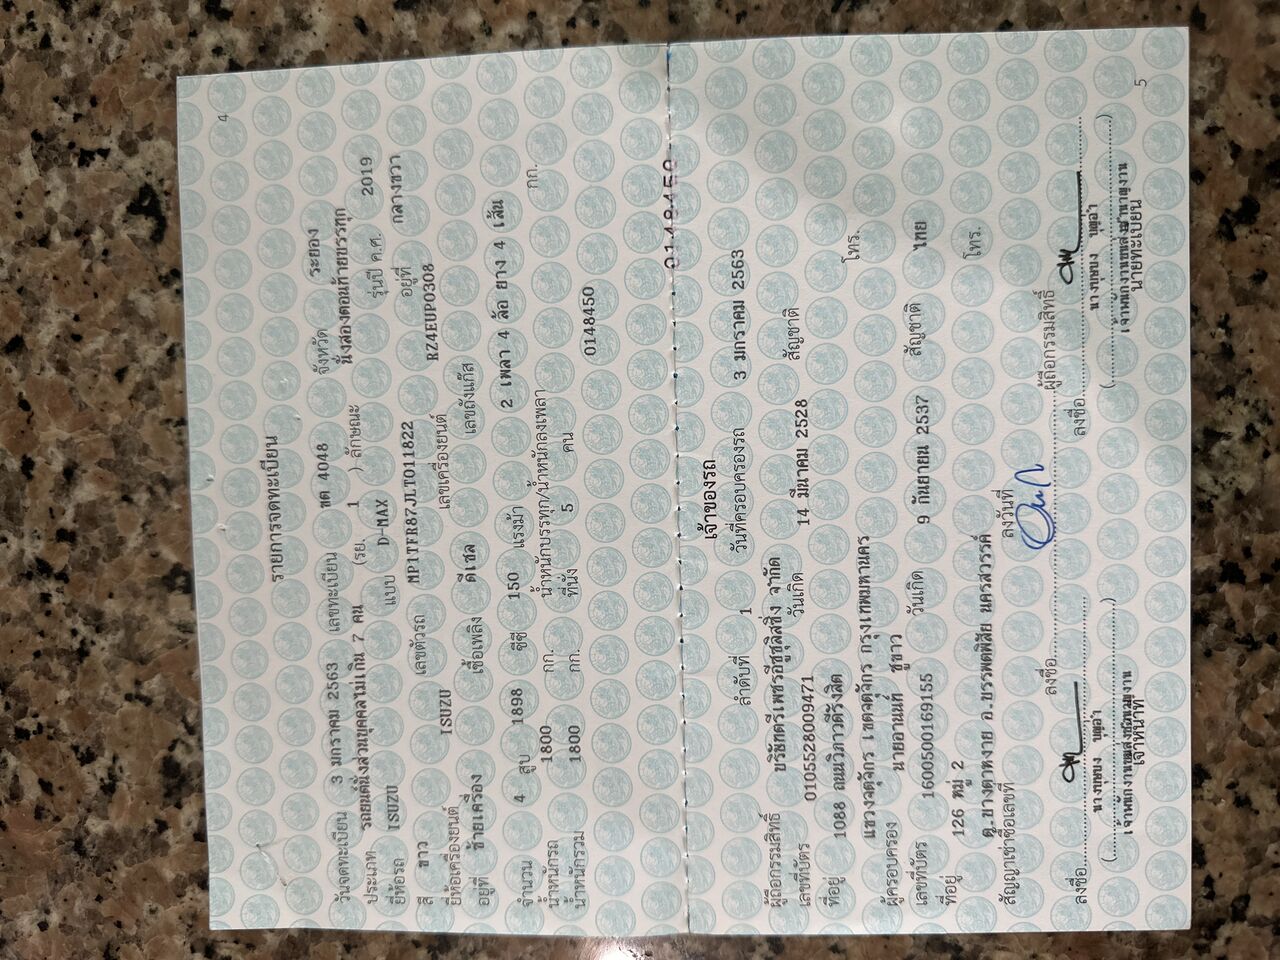 4
รายการจดทะเบียน
วันจดทะเบียน 3 มกราคม 2563 เลขทะเบียน ขต 4048 จังหวัด ระยอง
ประเภท รถยนต์นั่งส่วนบุคคลไม่เกิน 7 คน (รย. 1 ) ลักษณะ นั่งสองตอนท้ายบรรทุก
ยี่ห้อรถ ISUZU แบบ D-MAX รุ่นปี ค.ศ. 2019
สี ขาว เลขตัวรถ MP1TFR87JLT011822 อยู่ที่ กลางขวา
ยี่ห้อเครื่องยนต์ ISUZU เลขเครื่องยนต์ RZ4EUP0308
อยู่ที่ ซ้ายเครื่อง เชื้อเพลิง ดีเซล เลขถังแก๊ส
จำนวน 4 สูบ 1898 ซีซี 150 แรงม้า 2 เพลา 4 ล้อ ยาง 4 เส้น
น้ำหนักรถ 1800 กก. น้ำหนักบรรทุก/น้ำหนักลงเพลา กก.
น้ำหนักรวม 1800 กก. ที่นั่ง 5 คน
0148450
0148450
เจ้าของรถ
ลำดับที่ 1 วันที่ครอบครองรถ 3 มกราคม 2563
ผู้ถือกรรมสิทธิ์ บริษัทตรีเพชรอีซูซุลิสซิ่ง จำกัด
เลขที่บัตร 0105528009471 วันเกิด 14 มีนาคม 2528 สัญชาติ
ที่อยู่ 1088 ถนนวิภาวดีรังสิต
แขวงจตุจักร เขตจตุจักร กรุงเทพมหานคร โทร.
ผู้ครอบครอง นายอานนท์ ชูขาว
เลขที่บัตร 1600500169155 วันเกิด 9 กันยายน 2537 สัญชาติ ไทย
ที่อยู่ 126 หมู่ 2
ต.บางตาหงาย อ.บรรพตพิสัย นครสวรรค์ โทร.
สัญญาเช่าซื้อเลขที่ ลงวันที่
ลงชื่อ ผู้ถือกรรมสิทธิ์
ลงชื่อ ลงชื่อ
( ) ( )
เจ้าหน้าที่ นายทะเบียน
5